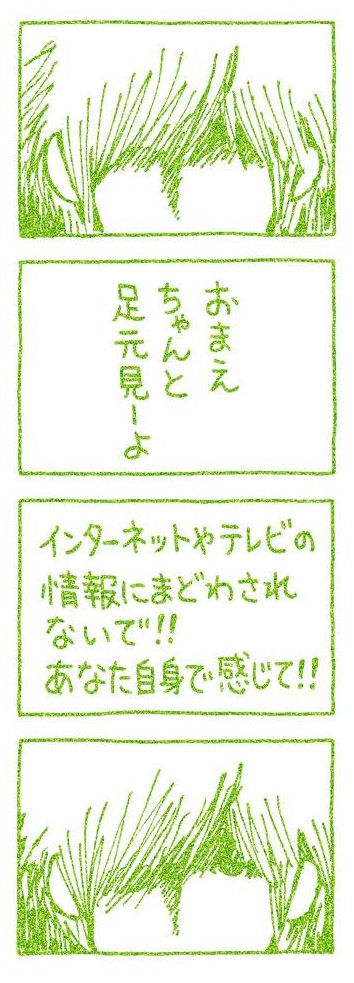 おまえ
ちゃんと
足元見ーよ
インターネットやテレビの
情報にまどわされ
ないで!!
あなた自身で感じて!!